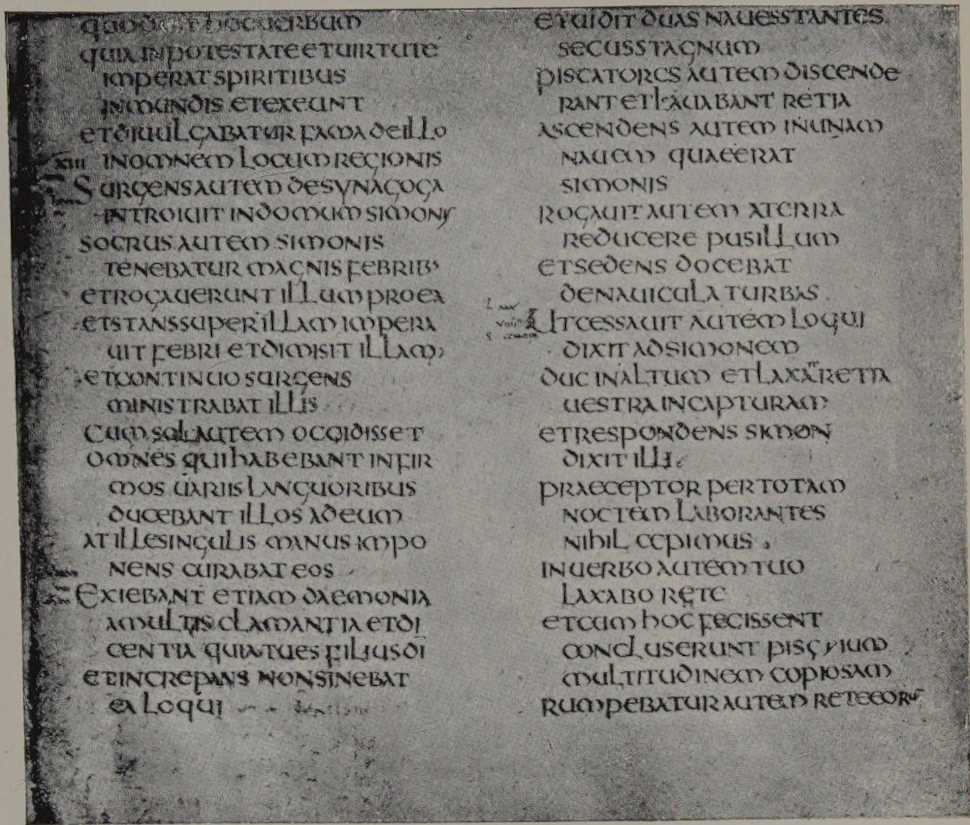 QUOD EST HOC UERBUM
QUIA IN POTESTATE ET UIRTUTE
IMPERAT SPIRITIBUS
INMUNDIS ET EXEUNT
ET DIUULGABATUR FAMA DE ILLO
XIII
IN OMNEM LOCUM REGIONIS
SURGENS AUTEM DE SYNAGOGA
INTROIUIT IN DOMUM SIMONIS
SOCRUS AUTEM SIMONIS
TENEBATUR MAGNIS FEBRIB·
ET ROGAUERUNT ILLUM PRO EA
ET STANS SUPER ILLAM IMPERA
UIT FEBRI ET DIMISIT ILLAM
ET CONTINUO SURGENS
MINISTRABAT ILLIS
CUM SOL AUTEM OCCIDISSET
OMNES QUI HABEBANT INFIR
MOS UARIIS LANGUORIBUS
DUCEBANT ILLOS AD EUM
AT ILLE SINGULIS MANUS IMPO
NENS CURABAT EOS
EXIEBANT ETIAM DAEMONIA
A MULTIS CLAMANTIA ET DI
CENTIA QUIA TU ES FILIUS DI
ET INCREPANS NON SINEBAT
EA LOQUI
ET UIDIT DUAS NAUES STANTES
SECUS STAGNUM
PISCATORES AUTEM DISCENDE
RANT ET LAUABANT RETIA
ASCENDENS AUTEM IN UNAM
NAUEM QUAE ERAT
SIMONIS
ROGAUIT AUTEM A TERRA
REDUCERE PUSILLUM
ET SEDENS DOCEBAT
DE NAUICULA TURBAS
UT CESSAUIT AUTEM LOQUI
DIXIT AD SIMONEM
DUC IN ALTUM ET LAXATE RETIA
UESTRA IN CAPTURAM
ET RESPONDENS SIMON
DIXIT ILLI
PRAECEPTOR PER TOTAM
NOCTEM LABORANTES
NIHIL CEPIMUS
IN UERBO AUTEM TUO
LAXABO RETE
ET CUM HOC FECISSENT
CONCLUSERUNT PISCIUM
MULTITUDINEM COPIOSAM
RUMPEBATUR AUTEM RETE EORU